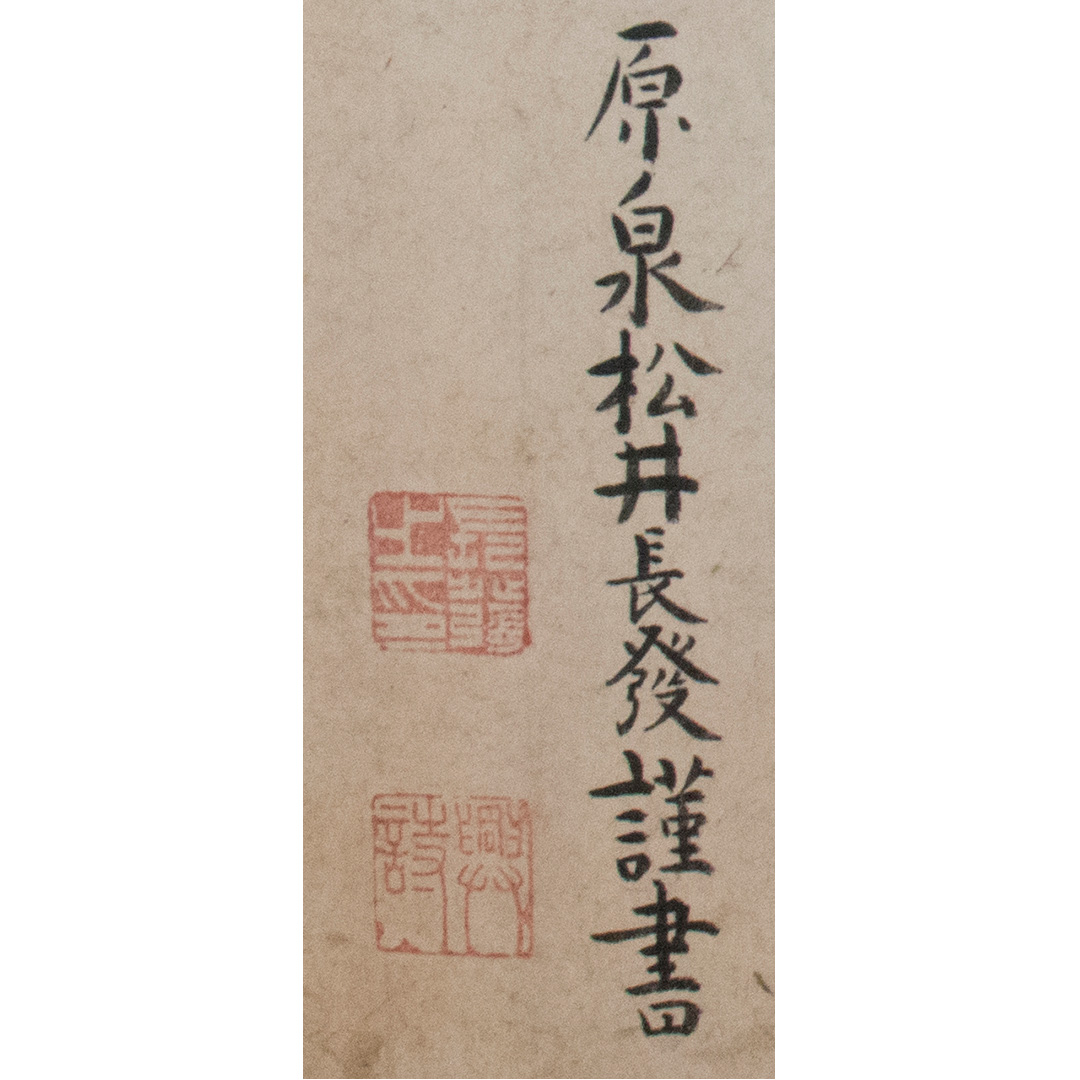 原泉松井長發謹書
興詩